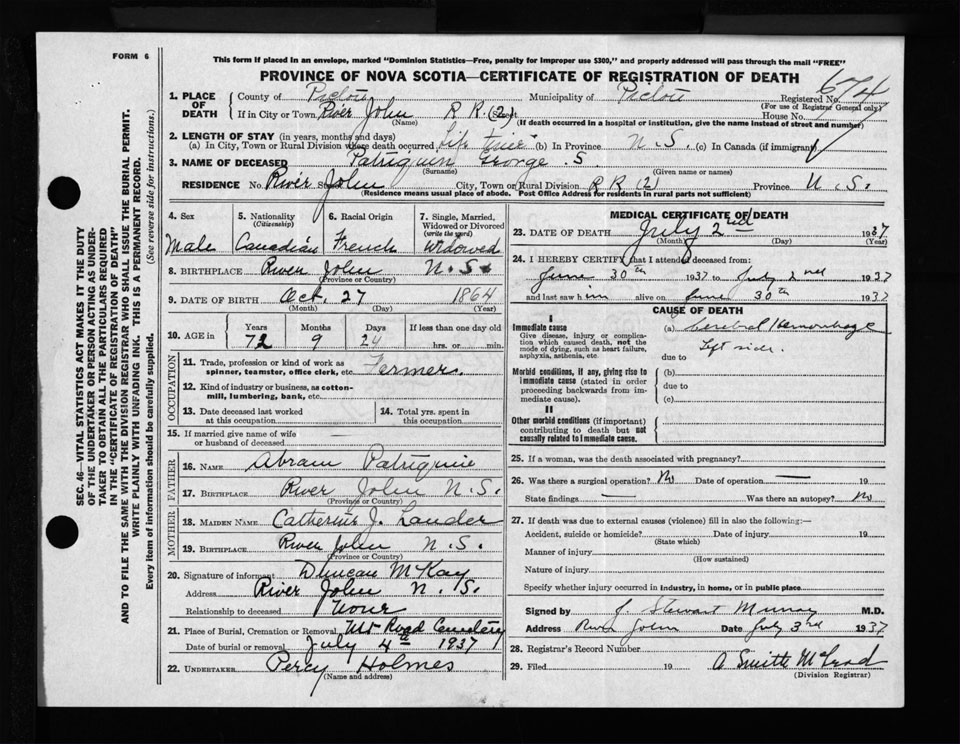 FORM 6
This form if placed in an envelope, marked "Dominion Statistics—Free, penalty for improper use $300," and properly addressed will pass through the mail "FREE"
PROVINCE OF NOVA SCOTIA—CERTIFICATE OF REGISTRATION OF DEATH
SEC. 46—VITAL STATISTICS ACT MAKES IT THE DUTY
OF THE UNDERTAKER OR PERSON ACTING AS UNDER-
TAKER TO OBTAIN ALL THE PARTICULARS REQUIRED
IN THE "CERTIFICATE OF REGISTRATION OF DEATH"
AND TO FILE THE SAME WITH THE DIVISION REGISTRAR WHO SHALL ISSUE THE BURIAL PERMIT.
WRITE PLAINLY WITH UNFADING INK. THIS IS A PERMANENT RECORD.
Every item of information should be carefully supplied. (See reverse side for instructions.)
1. PLACE OF DEATH County of Pictou Municipality of Pictou Registered No. 674
(For use of Registrar General only)
If in City or Town, River John R R. (2) Street House No.
(Name) (If death occurred in a hospital or institution, give the name instead of street and number)
2. LENGTH OF STAY (in years, months and days)
(a) In City, Town or Rural Division where death occurred Life time (b) In Province N.S. (c) In Canada (if immigrant)
3. NAME OF DECEASED Patriquin George S.
(Surname) (Given name or names)
RESIDENCE No. River John Street City, Town or Rural Division R R (2) Province N.S.
(Residence means usual place of abode. Post Office Address for residents in rural parts not sufficient)
4. Sex Male
5. Nationality (Citizenship) Canadian
6. Racial Origin French
7. Single, Married, Widowed or Divorced (write the word) Widowed
8. BIRTHPLACE River John N.S.
(Province or Country)
9. DATE OF BIRTH Oct. 27 1864
(Month) (Day) (Year)
10. AGE in Years 72 Months 9 Days 24 If less than one day old hrs. or min.
OCCUPATION
11. Trade, profession or kind of work as spinner, teamster, office clerk, etc. Farmer.
12. Kind of industry or business, as cotton-mill, lumbering, bank, etc.
13. Date deceased last worked at this occupation
14. Total yrs. spent in this occupation
15. If married give name of wife or husband of deceased —
FATHER
16. NAME Abram Patriquin
17. BIRTHPLACE River John N.S.
(Province or Country)
MOTHER
18. MAIDEN NAME Catherine J. Lauder
19. BIRTHPLACE River John N.S.
(Province or Country)
20. Signature of informant Duncan McKay
Address River John N.S.
Relationship to deceased None
21. Place of Burial, Cremation or Removal Road Cemetery
Date of burial or removal July 4th 1937
22. UNDERTAKER Percy Holmes
(Name and address)
MEDICAL CERTIFICATE OF DEATH
23. DATE OF DEATH July 2nd 1937
(Month) (Day) (Year)
24. I HEREBY CERTIFY that I attended deceased from:
June 30th 1937 to July 2nd 1937
and last saw him alive on June 30th 1937
CAUSE OF DEATH
I
Immediate cause
Give disease, injury or complication which caused death, not the mode of dying, such as heart failure, asphyxia, asthenia, etc.
(a) Cerebral Hemorrhage
Left side.
due to
Morbid conditions, if any, giving rise to immediate cause (stated in order proceeding backwards from immediate cause).
(b)
due to
(c)
II
Other morbid conditions (if important) contributing to death but not causally related to immediate cause.
25. If a woman, was the death associated with pregnancy?
26. Was there a surgical operation? No Date of operation — 19
State findings — Was there an autopsy? No
27. If death was due to external causes (violence) fill in also the following:—
Accident, suicide or homicide? Date of injury 19
(State which)
Manner of injury
(How sustained)
Nature of injury
Specify whether injury occurred in industry, in home, or in public place
Signed by J. Stewart Murray M.D.
Address River John Date July 3rd 1937
28. Registrar's Record Number
29. Filed 19
(Division Registrar)